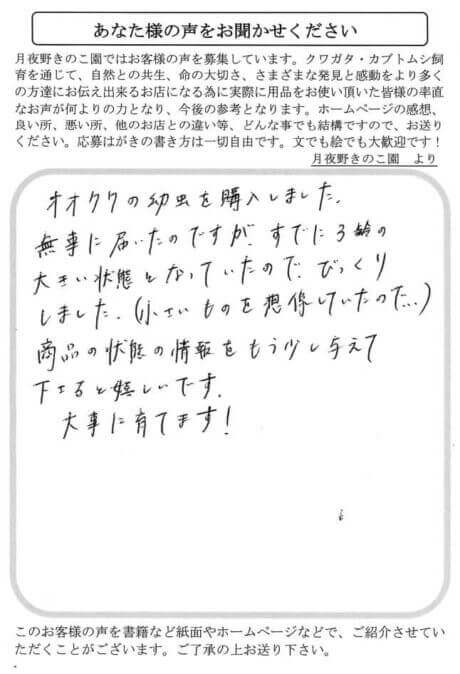 あなた様の声をお聞かせください
月夜野きのこ園ではお客様の声を募集しています。クワガタ・カブトムシ飼
育を通じて、自然との共生、命の大切さ、さまざまな発見と感動をより多く
の方達にお伝え出来るお店になる為に実際に用品をお使い頂いた皆様の率直
なお声が何よりの力となり、今後の参考となります。ホームページの感想、
良い所、悪い所、他のお店との違い等、どんな事でも結構ですので、お送り
ください。応募はがきの書き方は一切自由です。文でも絵でも大歓迎です！
月夜野きのこ園　より
オオクワの幼虫を購入しました。
無事に届いたのですが、すでに3齢の
大きい状態となっていたので、びっくり
しました。(小さいものを想像していたので…)
商品の状態の情報をもう少し与えて
下さると嬉しいです。
大事に育てます！
このお客様の声を書籍など紙面やホームページなどで、ご紹介させてい
ただくことがございます。ご了承の上お送り下さい。